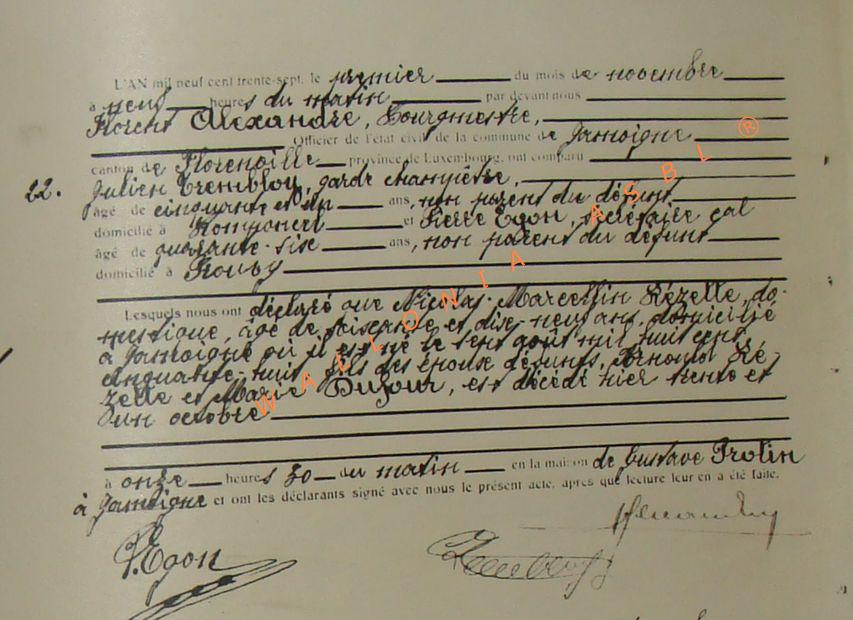 L'AN mil neuf cent trente-sept, le premier du mois de novembre
à neuf heures du matin par devant nous
Florent Alexandre, Bourgmestre,
Officier de l'état civil de la commune de Jamoigne
canton de Florenville province de Luxembourg, ont comparu
22. Julien Trembloy, garde champêtre,
âgé de cinquante et un ans, non parent du défunt
domicilié à et Pierre Egon, cal
âgé de quarante-six ans, non parent du défunt
domicilié à
Lesquels nous ont déclaré que Nicolas Marcellin Rézette, do-
mestique, âgé de soixante et dix-neuf ans, domicilié
à Jamoigne où il est né le sept août mil huit cent
cinquante-huit, fils des époux défunts, Arnould Ré-
zette et Marie Dujour, est décédé hier trente et
un octobre
à onze heures 30 du matin en la maison de Gustave Protin
à Jamoigne et ont les déclarants signé avec nous le présent acte, après que lecture leur en a été faite.
P. Egon
WALLONIA ASBL ®